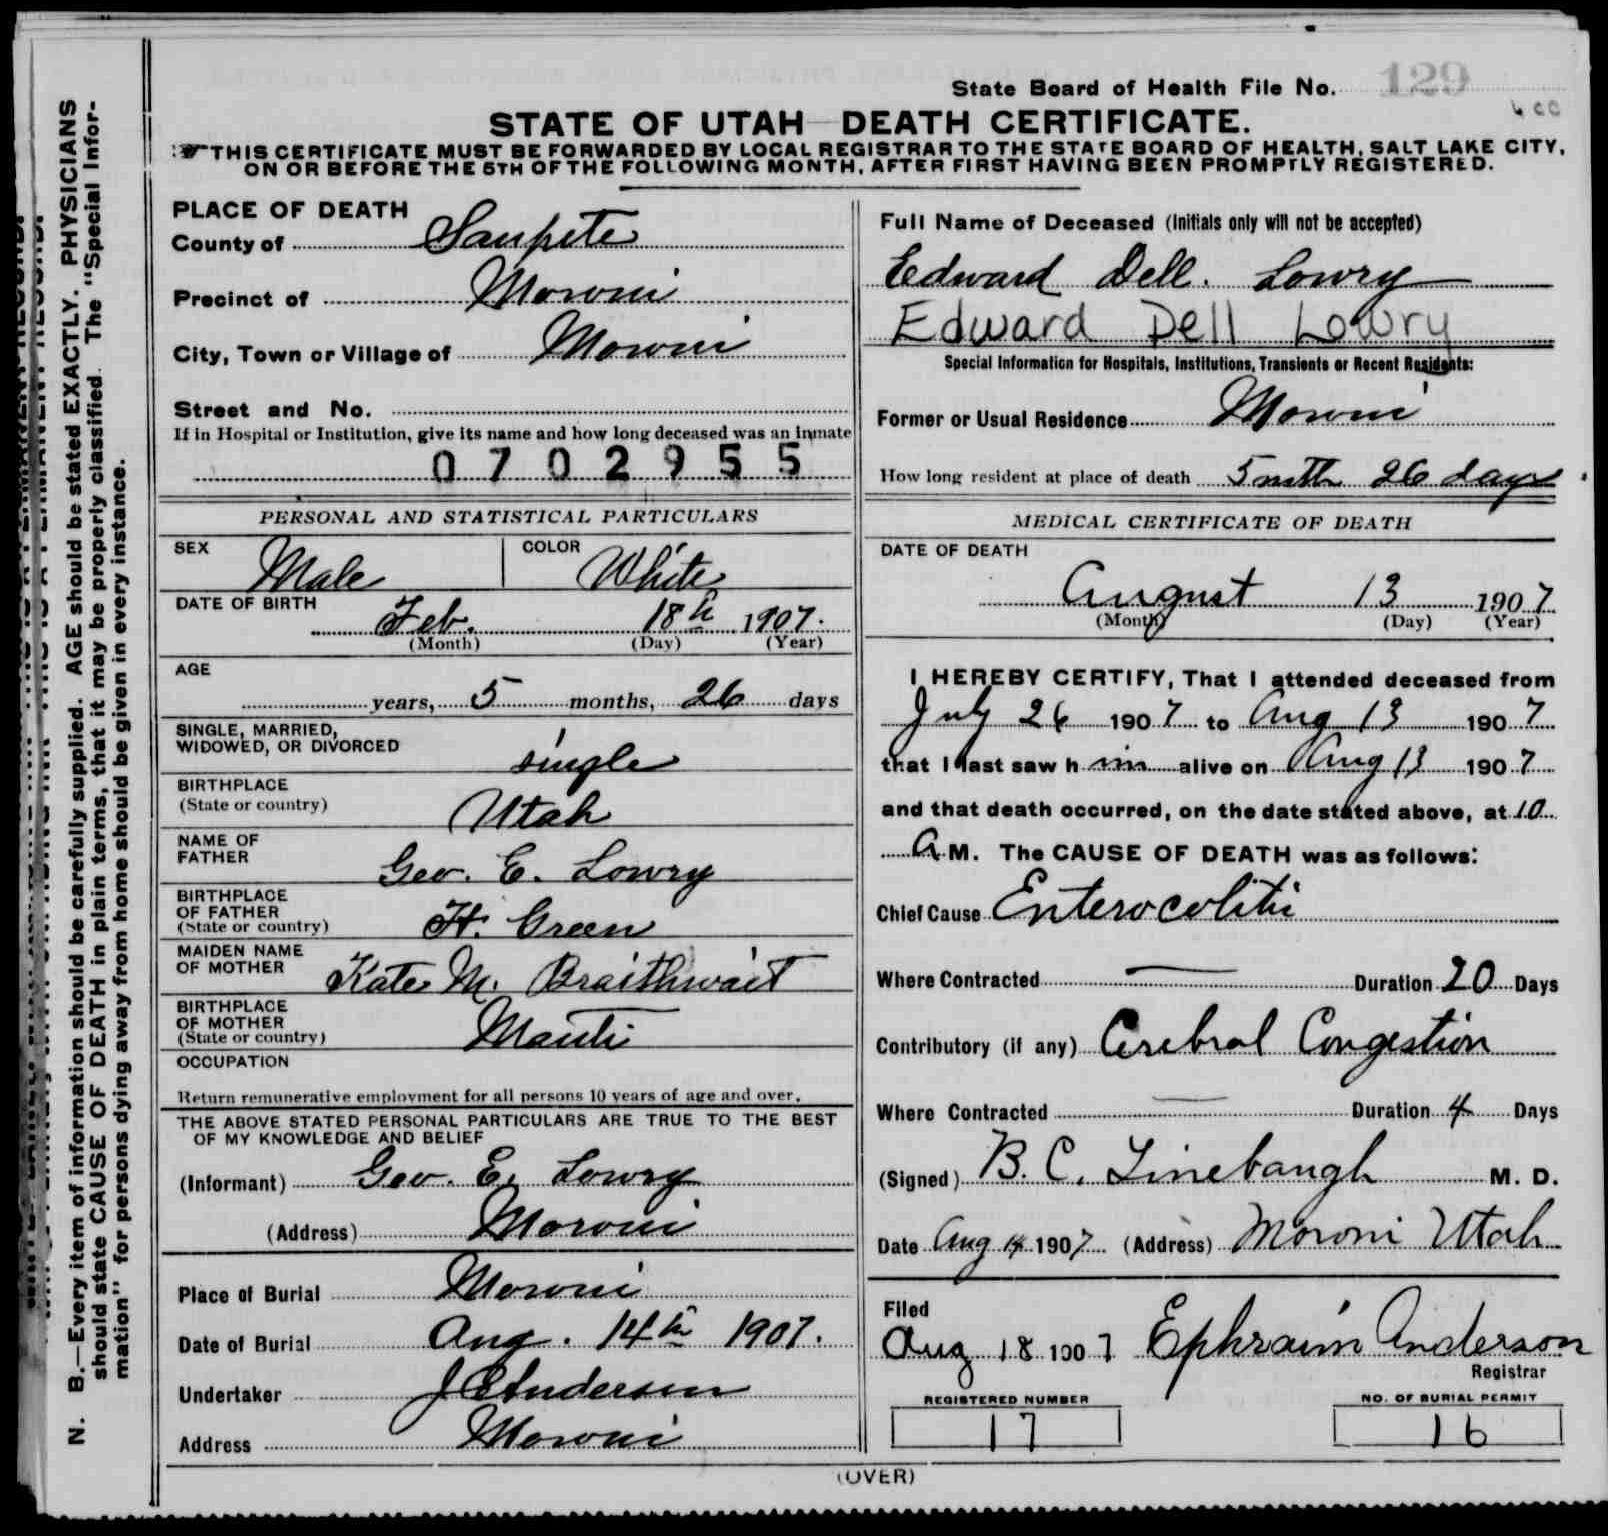 State Board of Health File No. 129
6 cc
STATE OF UTAH—DEATH CERTIFICATE.
THIS CERTIFICATE MUST BE FORWARDED BY LOCAL REGISTRAR TO THE STATE BOARD OF HEALTH, SALT LAKE CITY,
ON OR BEFORE THE 5TH OF THE FOLLOWING MONTH, AFTER FIRST HAVING BEEN PROMPTLY REGISTERED.
PLACE OF DEATH
County of Sanpete
Precinct of Moroni
City, Town or Village of Moroni
Street and No.
If in Hospital or Institution, give its name and how long deceased was an inmate
0702955
PERSONAL AND STATISTICAL PARTICULARS
SEX Male COLOR White
DATE OF BIRTH
Feb. 18th 1907.
(Month) (Day) (Year)
AGE
years, 5 months, 26 days
SINGLE, MARRIED,
WIDOWED, OR DIVORCED single
BIRTHPLACE
(State or country) Utah
NAME OF
FATHER Geo. E. Lowry
BIRTHPLACE
OF FATHER
(State or country) Ft. Green
MAIDEN NAME
OF MOTHER Kate M. Braithwait
BIRTHPLACE
OF MOTHER
(State or country) Manti
OCCUPATION
Return remunerative employment for all persons 10 years of age and over.
THE ABOVE STATED PERSONAL PARTICULARS ARE TRUE TO THE BEST
OF MY KNOWLEDGE AND BELIEF
(Informant) Geo. E. Lowry
(Address) Moroni
Place of Burial Moroni
Date of Burial Aug. 14th 1907.
Undertaker J C Anderson
Address Moroni
Full Name of Deceased (Initials only will not be accepted)
Edward Dell. Lowry
Edward Dell Lowry
Special Information for Hospitals, Institutions, Transients or Recent Residents:
Former or Usual Residence Moroni
How long resident at place of death 5 mth 26 days
MEDICAL CERTIFICATE OF DEATH
DATE OF DEATH
August 13 1907
(Month) (Day) (Year)
I HEREBY CERTIFY, That I attended deceased from
July 26 1907 to Aug 13 1907
that I last saw h im alive on Aug 13 1907
and that death occurred, on the date stated above, at 10
A M. The CAUSE OF DEATH was as follows:
Chief Cause Enterocolitis
Where Contracted — Duration 20 Days
Contributory (if any) Cerebral Congestion
Where Contracted — Duration 4 Days
(Signed) B. C. Linebaugh M. D.
Date Aug 14 1907 (Address) Moroni Utah
Filed
Aug 18 1907 Ephraim Anderson
Registrar
REGISTERED NUMBER NO. OF BURIAL PERMIT
17 16
(OVER)
N. B.—Every item of information should be carefully supplied. AGE should be stated EXACTLY. PHYSICIANS
should state CAUSE OF DEATH in plain terms, that it may be properly classified. The "Special Infor-
mation" for persons dying away from home should be given in every instance.